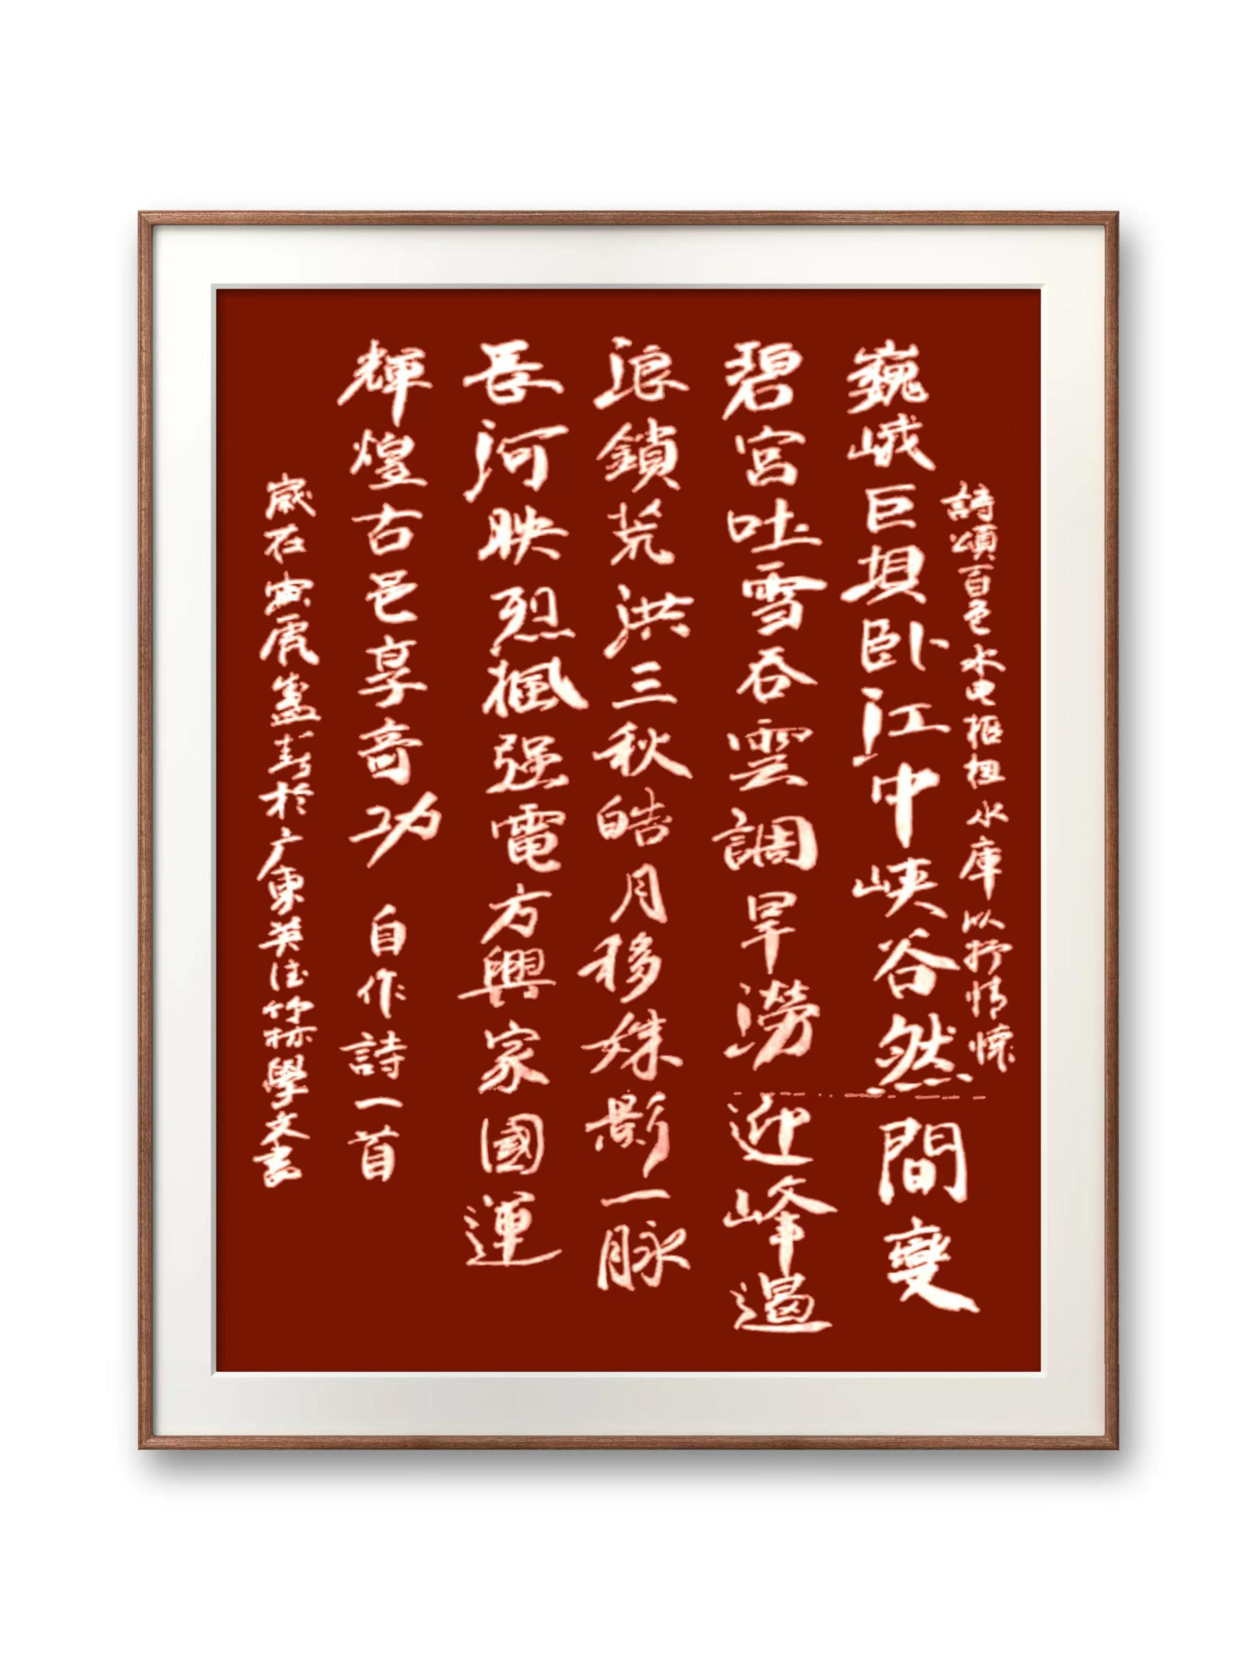 詩頌百色水电枢杻水庫以抒情懷
巍峨巨坝卧江中峡谷然間變
碧宮吐雪吞雲調旱澇迎峰遏
浪鎖荒洪三秋皓月移姝影一脉
長河映烈楓强電方興家國運
輝煌古邑享奇功 自作詩一首
歲在寅虎 於广東英 竹林學文書